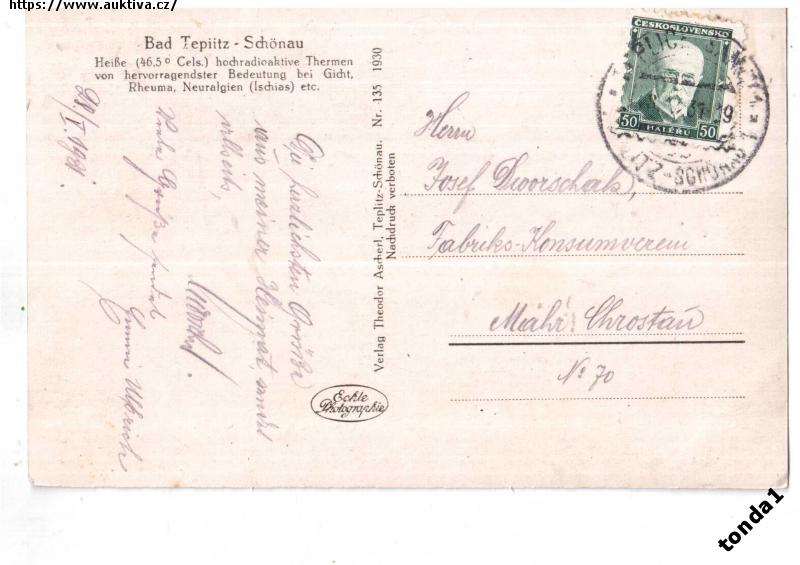 https://www.auktiva.cz/
Bad Teplitz - Schönau
Heiße (46,5º Cels.) hochradioaktive Thermen
von hervorragendster Bedeutung bei Gicht,
Rheuma, Neuralgien (Ischias) etc.
Die herzlichsten Grüße
aus meiner Heimat
Viele Grüße sendet
Verlag Theodor Ascherl, Teplitz-Schönau. Nr. 135 1930
Nachdruck verboten
Echte
Photographie
ČESKOSLOVENSKO
50 HALÉŘŮ 50
SCHÖNAU
Herrn
Josef Dworschak,
Fabriks-Konsumverein
Mähr. Chrostau
No 70
tonda1